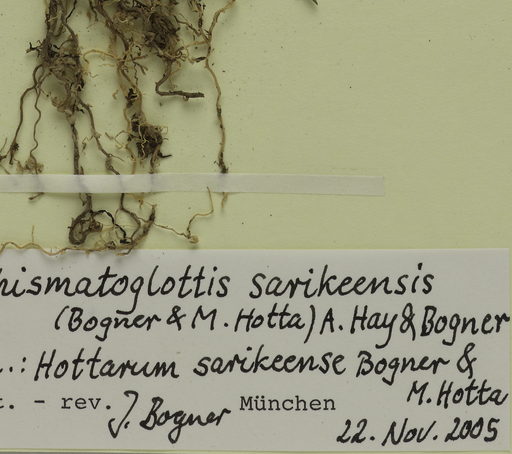 hismatoglottis sarikeensis
(Bogner & M. Hotta) A. Hay & Bogner
.: Hottarum sarikeense Bogner &
M. Hotta
t. - rev. J. Bogner München
22. Nov. 2005